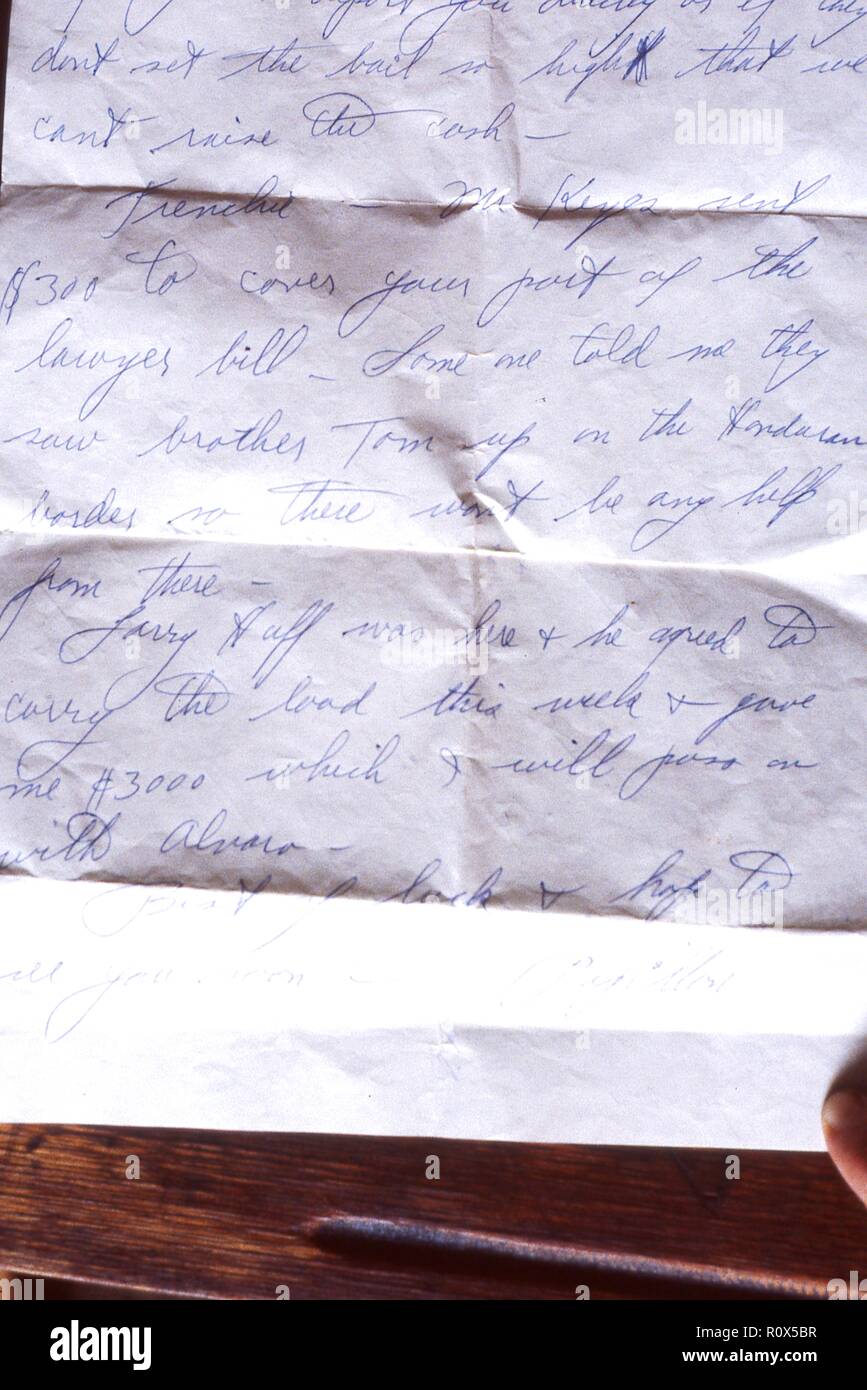 you as if they
dont set the bail so high that we
cant raise the cash –
Frenchie – Mr Keyes sent
$300 to cover your part of the
lawyer bill – Some one told me they
saw brother Tom up on the Honduran
border so there wont be any help
from there –
Larry Huff was here & he agreed to
carry the load this week & gave
me $3000 which I will pass on
with Alvaro –
Best of luck & hope to
see you soon – Papillon
alamy
Image ID: R0X5BR
www.alamy.com